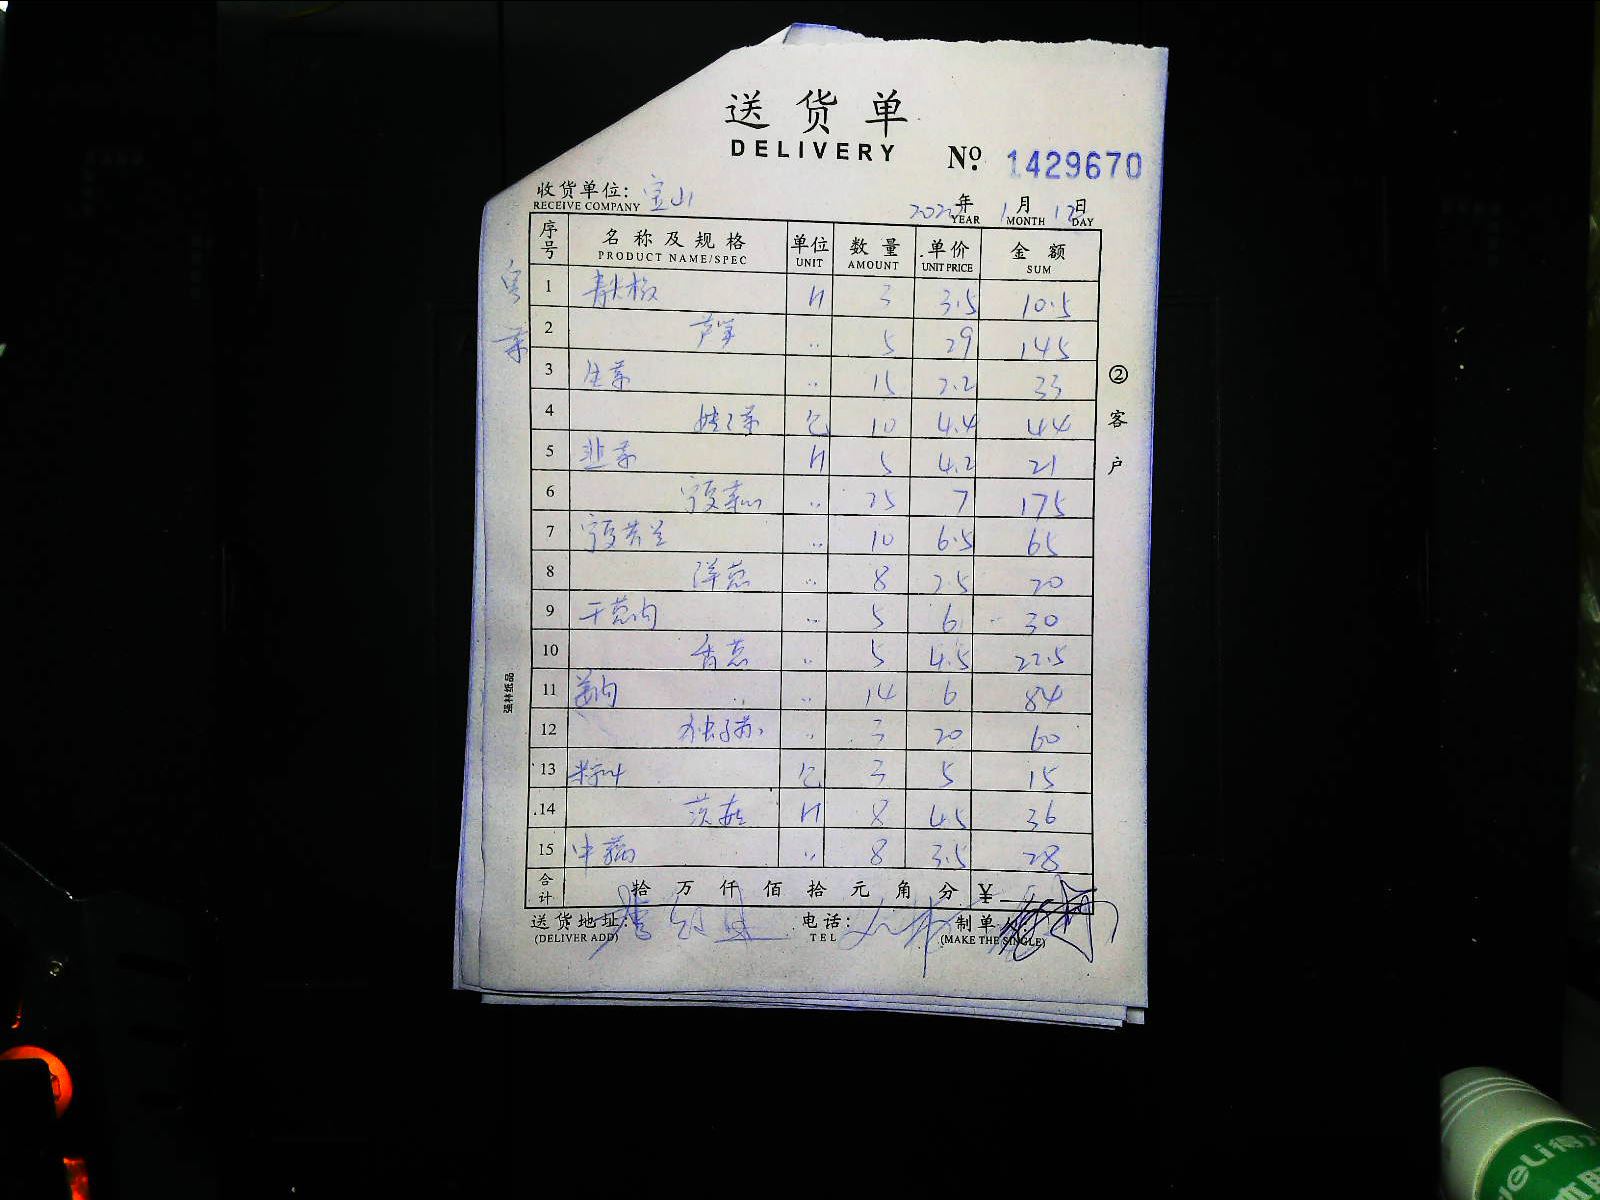 送货单
DELIVERY
No. 1429670
收货单位: 宝山
RECEIVE COMPANY
2022年 1月 12日
YEAR MONTH DAY
序号 名称及规格 单位 数量 单价 金额
PRODUCT NAME/SPEC UNIT AMOUNT UNIT PRICE SUM
1 青大椒 斤 3 3.5 10.5
2 芦笋 〃 5 29 145
3 生菜 〃 15 2.2 33
4 娃娃菜 包 10 4.4 44
5 韭菜 斤 5 4.2 21
6 宁夏菜心 〃 25 7 175
7 宁夏芥兰 〃 10 6.5 65
8 洋葱 〃 8 2.5 20
9 干葱肉 〃 5 6 30
10 香葱 〃 5 4.5 22.5
11 姜肉 〃 14 6 84
12 独子蒜 〃 3 20 60
13 包 3 5 15
14 斤 8 4.5 36
15 〃 8 3.5 28
合计 拾万仟佰拾元角分 ¥
送货地址:
(DELIVER ADD)
电话:
TEL
制单
(MAKE THE SINGLE)
②客户
强林纸品
deli 得力